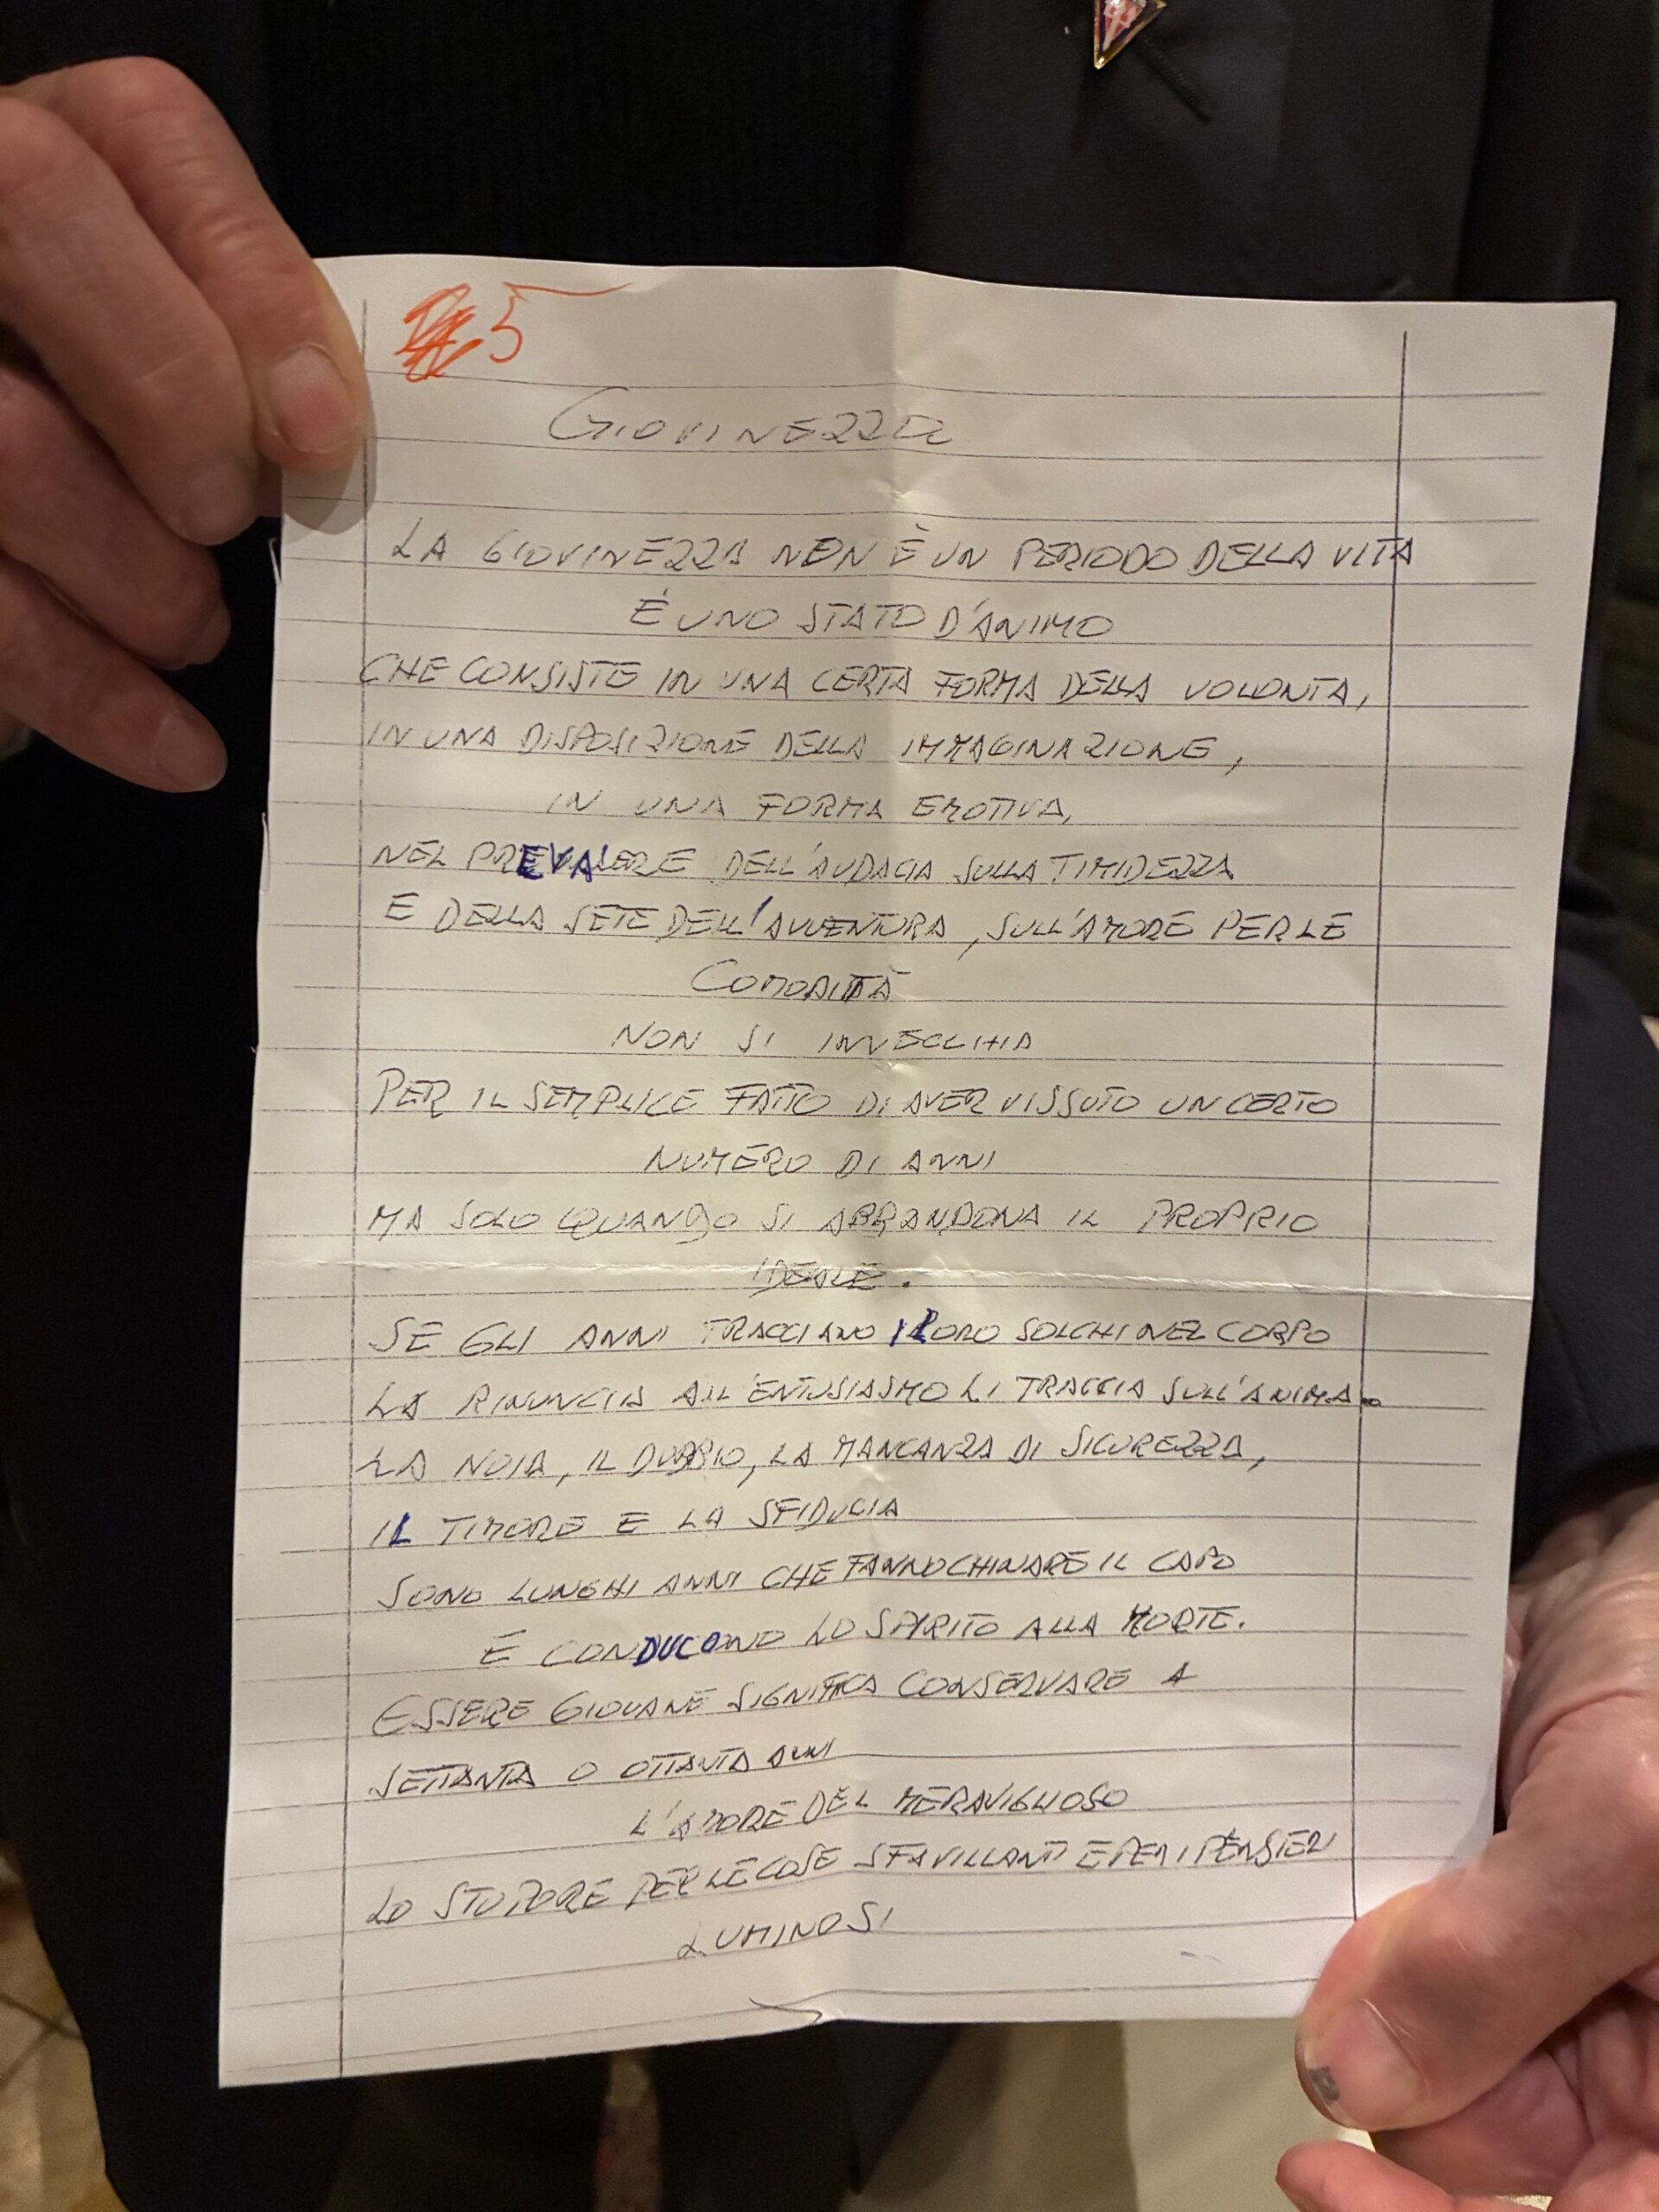 5
GIOVINEZZA
LA GIOVINEZZA NON È UN PERIODO DELLA VITA
È UNO STATO D'ANIMO
CHE CONSISTE IN UNA CERTA FORMA DELLA VOLONTA,
IN UNA DISPOSIZIONE DELLA IMMAGINAZIONE,
IN UNA FORMA EMOTIVA,
NEL PREVALERE DELL'AUDACIA SULLA TIMIDEZZA
E DELLA SETE DELL'AVVENTURA, SULL'AMORE PER LE
COMODITÀ
NON SI INVECCHIA
PER IL SEMPLICE FATTO DI AVER VISSUTO UN CERTO
NUMERO DI ANNI
MA SOLO QUANDO SI ABBANDONA IL PROPRIO
IDEALE.
SE GLI ANNI TRACCIANO I LORO SOLCHI NEL CORPO
LA RINUNCIA ALL'ENTUSIASMO LI TRACCIA SULL'ANIMA.
LA NOIA, IL DUBBIO, LA MANCANZA DI SICUREZZA,
IL TIMORE E LA SFIDUCIA
SONO LUNGHI ANNI CHE FANNO CHINARE IL CAPO
E CONDUCONO LO SPIRITO ALLA MORTE.
ESSERE GIOVANE SIGNIFICA CONSERVARE A
SETTANTA O OTTANTA ANNI
L'AMORE DEL MERAVIGLIOSO
LO STUPORE PER LE COSE SFAVILLANTI E PER I PENSIERI
LUMINOSI